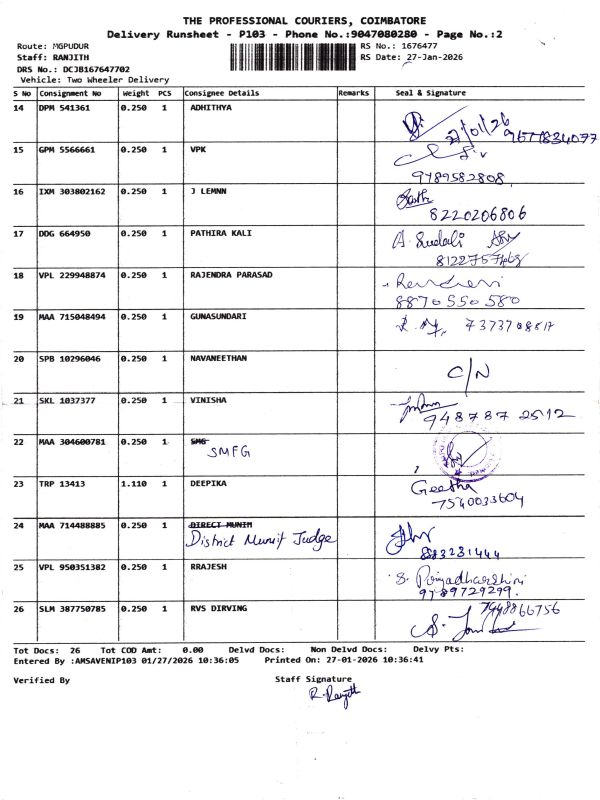 THE PROFESSIONAL COURIERS, COIMBATORE
Delivery Runsheet - P103 - Phone No.:9047080280 - Page No.:2
Route: MGPUDUR
RS No.: 1676477
Staff: RANJITH
RS Date: 27-Jan-2026
DRS No.: DCJB167647702
Vehicle: Two Wheeler Delivery
S No Consignment No Weight PCS Consignee Details Remarks Seal & Signature
14 DPM 541361 0.250 1 ADHITHYA
27/01/26
15 GPM 5566661 0.250 1 VPK
9789582808
16 IXM 303802162 0.250 1 J LEMNN
8220206806
17 DDG 664950 0.250 1 PATHIRA KALI A. Sudali
18 VPL 229948874 0.250 1 RAJENDRA PARASAD
8870550580
19 MAA 715048494 0.250 1 GUNASUNDARI
20 SPB 10296046 0.250 1 NAVANEETHAN C/N
21 SKL 1037377 0.250 1 VINISHA
948787 2512
22 MAA 304600781 0.250 1 SMG
SMFG
23 TRP 13413 1.110 1 DEEPIKA Geetha
7540033604
24 MAA 714488885 0.250 1 DIRECT MUNIM
District Munsif Judge
883231444
25 VPL 950351382 0.250 1 RRAJESH S. Priyadharshini
9789729299.
26 SLM 387750785 0.250 1 RVS DIRVING 7948866756
Tot Docs: 26 Tot COD Amt: 0.00 Delvd Docs: Non Delvd Docs: Delvy Pts:
Entered By :AMSAVENIP103 01/27/2026 10:36:05 Printed On: 27-01-2026 10:36:41
Verified By Staff Signature
R. Ranjith